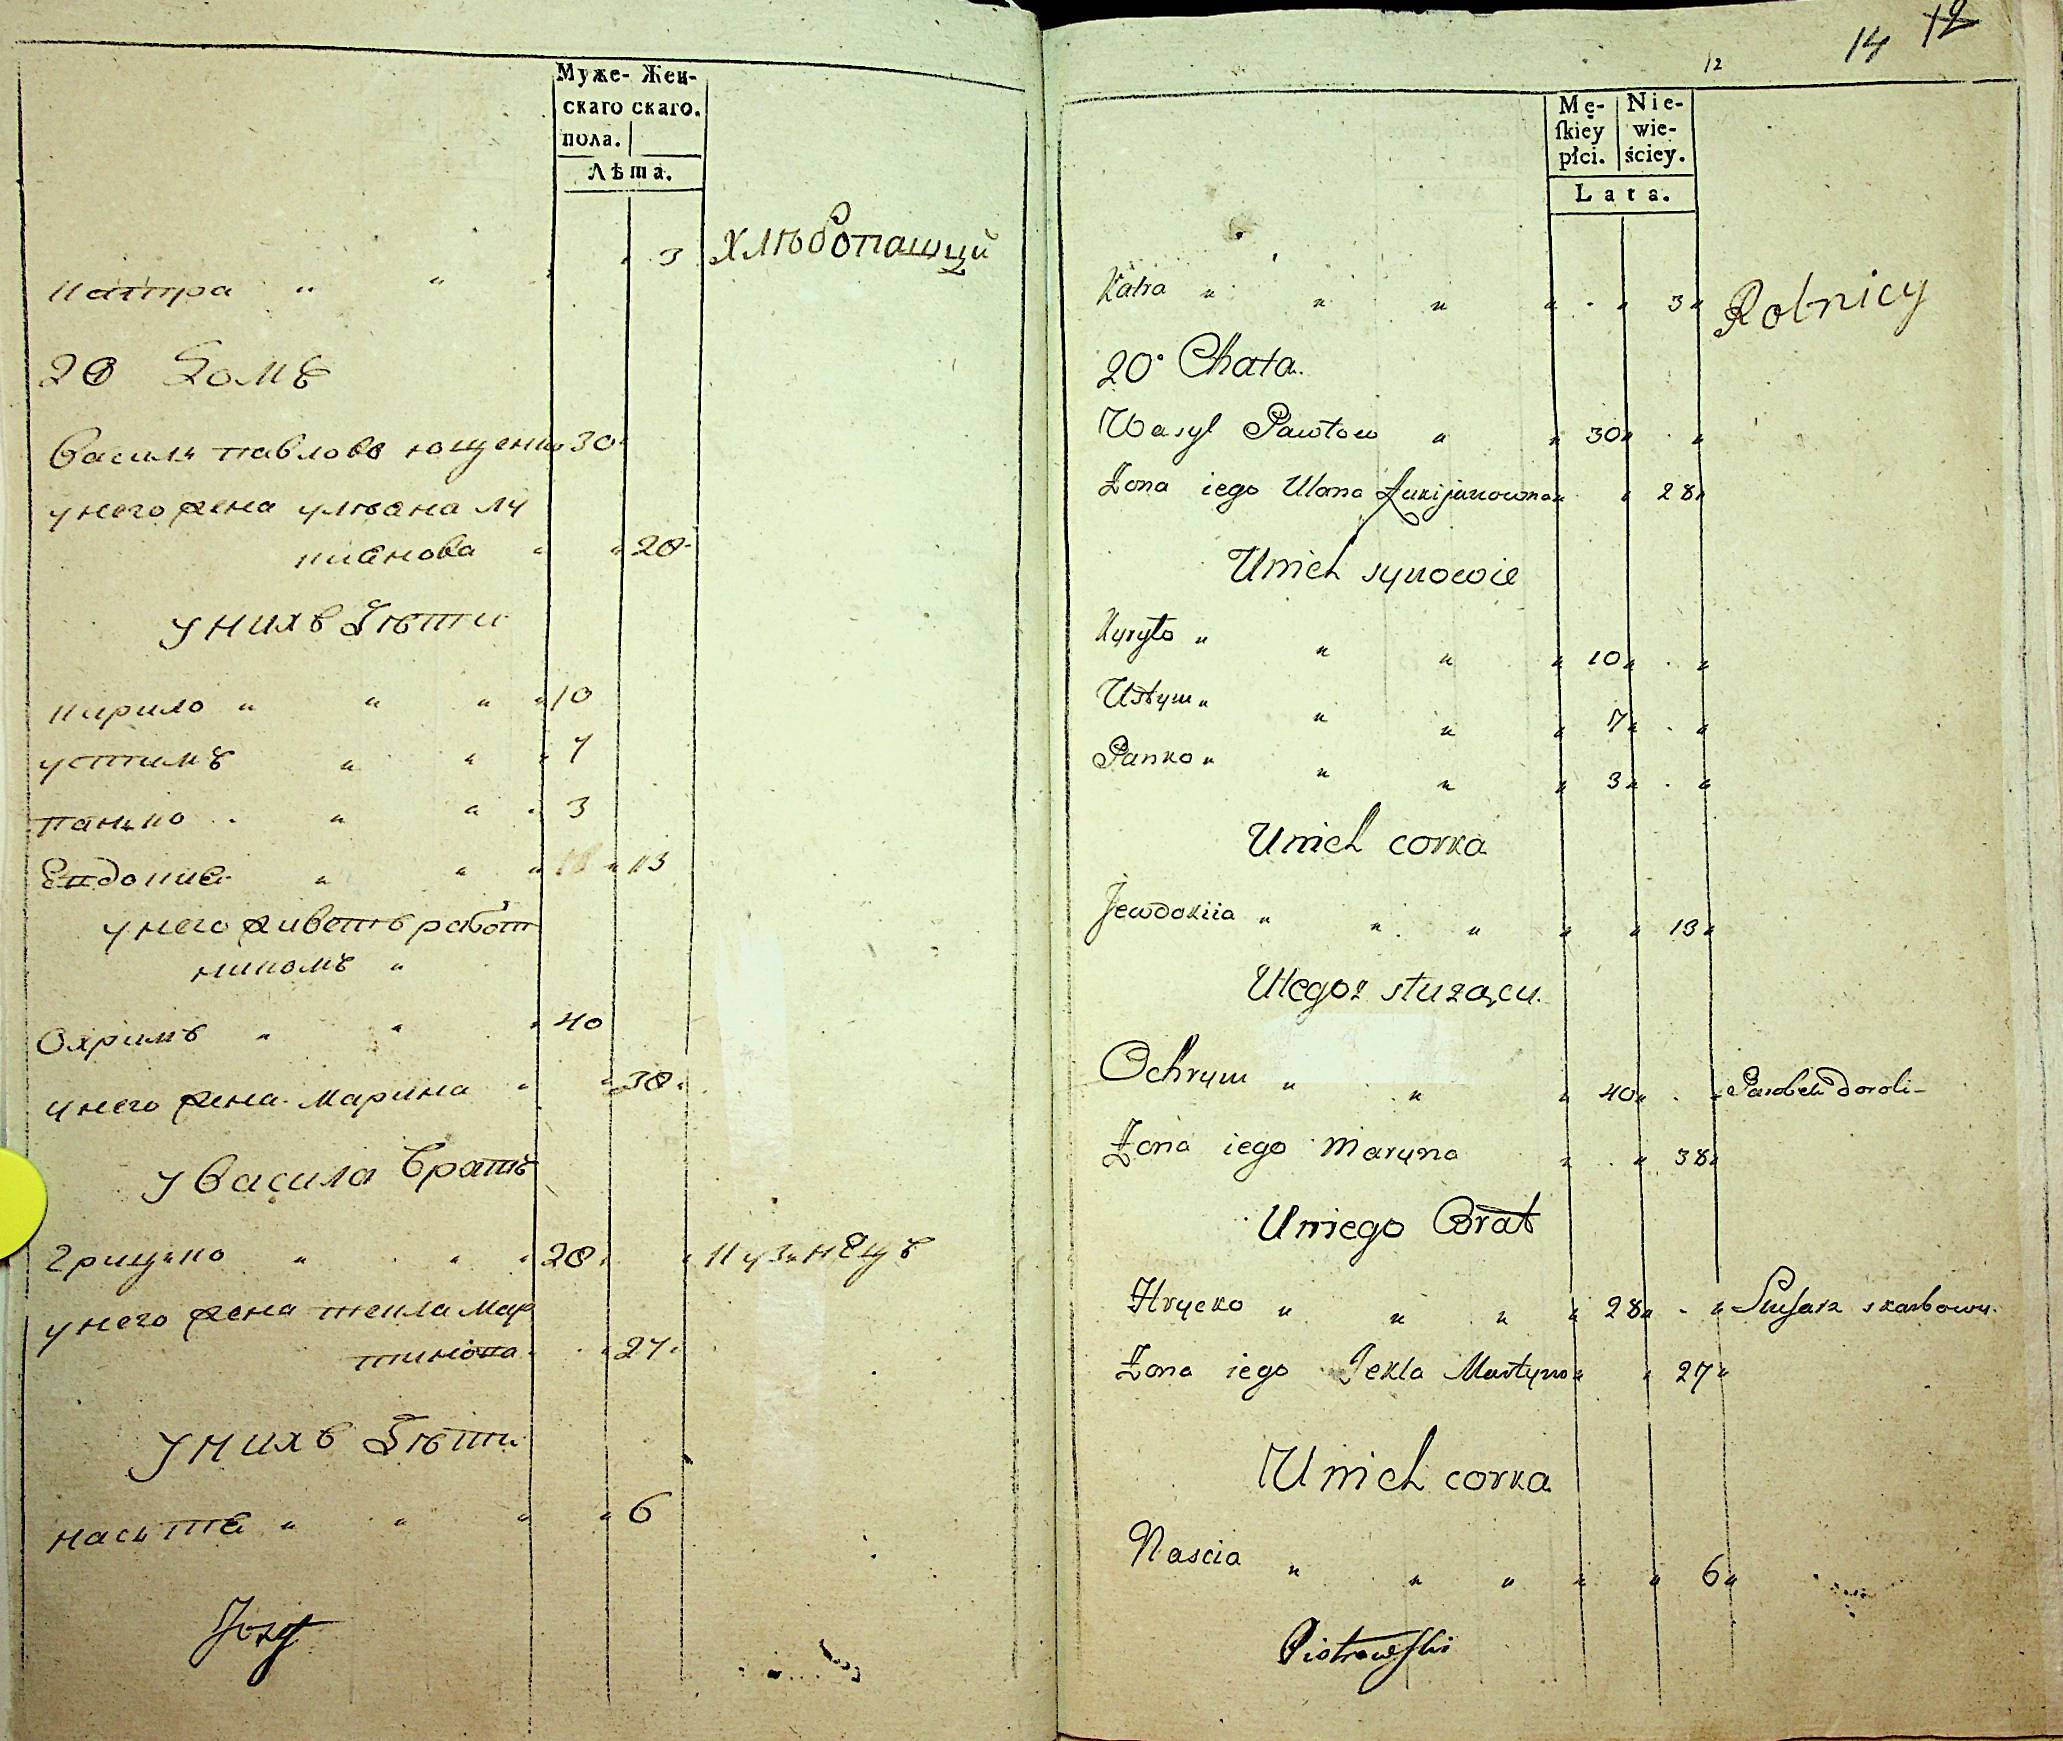 Муже- Жен-
скаго скаго.
пола.
Лѣта.
катра " " " 3 хлѣбопашцй
20 домъ
василь павловъ ющенко 30
унего жена улюана лу
киянова " " 28
унихъ дѣти
кирило " " " " 10
устимъ " " " 7
панько " " " 3
Евдокиа " " " " 13
унего живетъ работ
никомъ "
Охримъ " " " 40
унего жена марина " " 38
у васила братъ
грицько " " " 28 " кузнецъ
унего жена текла мар
тинова " 27
унихъ дѣти
настя " " " " 6
Jozef
12 14 12
Mę- Nie-
skiey wie-
płci. ściey.
Lata.
Katra " " " " " 3 " Rolnicy
20° Chata.
Wasyl Pawłow " " 30 " "
Żona iego Ulana Łukijanowna " " 28 "
Unich synowie
Kyryło " " " " 10 " "
Ustym " " " " 7 " "
Panko " " " " 3 " "
Unich corka
Jewdokiia " " " " " 13 "
Utegoż służący.
Ochrym " " " 40 " " Parobek doroli-
Żona iego Maryna " " 38 "
Uniego Brat
Hrycko " " " " 28 " " Slusarz skarbowy.
Żona iego Tekla Martyno " " 27 "
Unich corka
Nascia " " " " " 6 "
Piotrowski